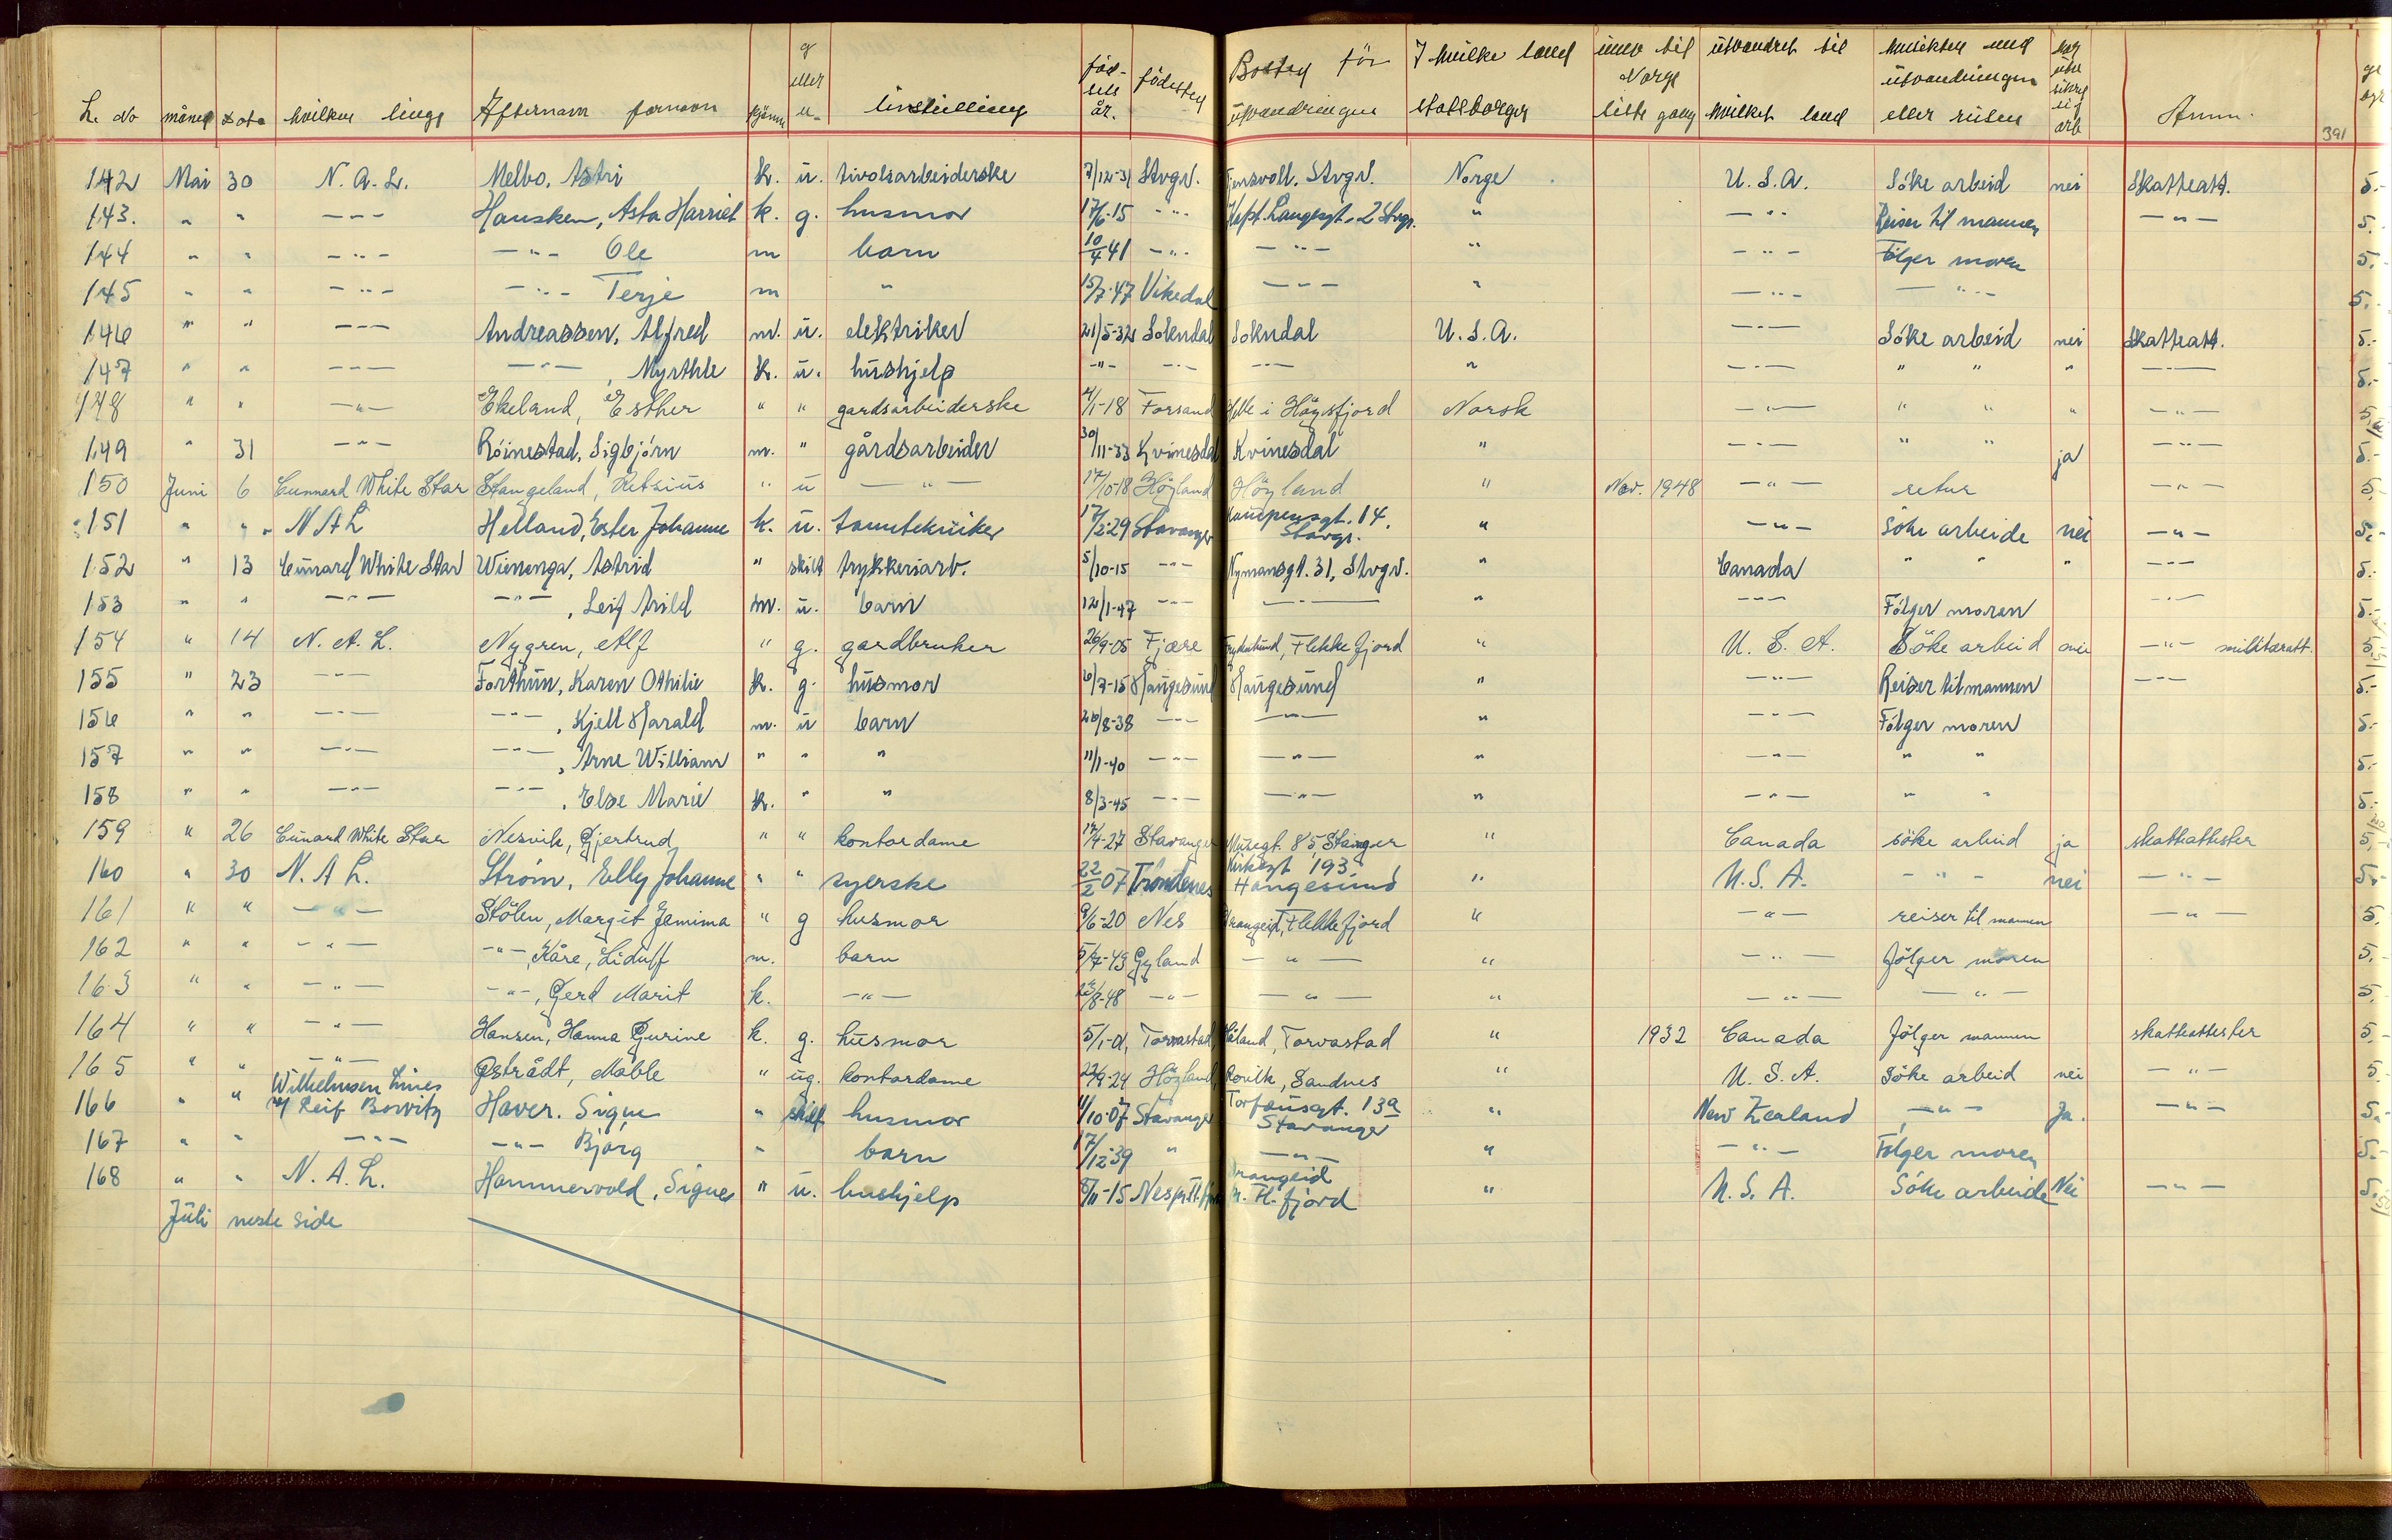 L. No måned dato hvilken linge Efternavn fornavn kjønn g eller u. livstilling fød- sels år. fødested Bosted før utvandringen I hvilke land statsborger innv til Norge siste gang utvandret til hvilket land hensikten med utvandringen eller reisen har utvr sikret sig arb Anm. 391
142 Mai 30 N. A. L. Melbo, Astri k. u. tivoliarbeiderske 7/12-31 Stvgr. Tjensvoll. Stvgr. Norge U. S. A. Söke arbeid nei Skatteatt. 5.-
143. " " -"- Hausken, Asta Harriet k. g. husmor 17/6-15 -"- Kapt. Langesgt. 2 Stvgr. " -"- Reiser til mannen -"- 5.
144 " " -"- -"- Ole m barn 10/4 41 -"- -"- " -"- Følger moren 5.
145 " " -"- -"- Terje m " 15/7-47 Vikedal -"- " -"- -"- 5.
146 " " -"- Andreassen, Alfred m. u. elektriker 21/5-32 Sokndal Sokndal U. S. A. -"- Söke arbeid nei Skatteatt. 5.-
147 " " -"- -"-, Myrthle k. u. hushjelp -"- -"- -"- " -"- " " " -"- 5.-
148 " " -"- Ekeland, Esther " " gardsarbeiderske 4/1-18 Forsand Helle i Høgsfjord Norsk -"- " " " -"- 5.
149 " 31 -"- Röinestad, Sigbjörn m. " gårdsarbeider 30/11-33 Kvinesdal Kvinesdal " -"- " " ja -"- 5.-
150 Juni 6 Cunnard White Star Stangeland, Retsius " u -"- 17/10-18 Høyland Høyland " Nov. 1948 -"- retur -"- 5.
151 " " NAL Helland, Ester Johanne k. u. tanntekniker 17/2-29 Stavanger Kampensgt. 14. Stavgr. " -"- Söke arbeide nei -"- 5.-
152 " 13 Cunard White Star Wienenga, Astrid " skilt trykkeriarb. 5/10-15 -"- Nymansgt. 31, Stvgr. " Canada " " " -"- 5.-
153 " " -"- -"-, Leif Arild m. u. barn 12/1-47 -"- -"- " -"- Følger moren -"- 5.-
154 " 14 N. A. L. Nygren, Alf " g. gardbruker 26/9-05 Fjære Flekkefjord " U. S. A. Söke arbeid nei -"- militæratt. 5.
155 " 23 -"- Forthun, Karen Othilie k. g. husmor 6/7-15 Haugesund Haugesund " -"- Reiser til mannen -"- 5.-
156 " " -"- -"-, Kjell Harald m. u barn 26/8-38 -"- -"- " -"- Følger moren 5.-
157 " " -"- -"-, Arne William " " " 11/1-40 -"- -"- " -"- " " 5.-
158 " " -"- -"-, Else Marie k. " " 8/3-45 -"- -"- " -"- " " 5.-
159 " 26 Cunard White Star Nesvik, Gjertrud " " kontordame 17/4-27 Stavanger Musegt. 85 Stavanger " Canada söke arbeid ja skatteattester 5.
160 " 30 N. A L. Strøm, Elly Johanne " " syerske 22/2 07 Trondenes Kirkegt 193 Haugesund " U. S. A. -"- nei -"- 5.-
161 " " -"- Stölen, Margit Jemima " g husmor 9/6-20 Nes Drangeid, Flekkefjord " -"- reiser til mannen -"- 5.
162 " " -"- -"-, Kåre, Lidulf m. barn 5/7-43 Gyland -"- " -"- følger moren 5.
163 " " -"- -"-, Gerd Marit k. -"- 23/8-48 -"- -"- " -"- -"- 5.
164 " " -"- Hansen, Hanna Gurine k. g. husmor 5/1-01, Torvastad Håland, Torvastad " 1932 Canada følger mannen skatteattester 5.
165 " " -"- Gstrådt, Mable " ug. kontordame 23/9-24 Høyland Sandnes " U. S. A. Söke arbeid nei -"- 5
166 " " Wilhelmsen Lines Haver. Signe " skilt husmor 4/10-07 Stavanger Torfæusgt. 13a Stavanger " New Zealand -"- Ja. -"- 5.-
167 " " -"- -"- Bjørg " barn 17/12-39 " -"- " -"- Følger moren 5.-
168 " " N. A. L. Hammervold, Signe " u. hushjelp 8/11-15 Nes pr. Fl.fj. Drangeid pr. Fl. fjord " U. S. A. Söke arbeide Nei -"- 5.
Juli neste side